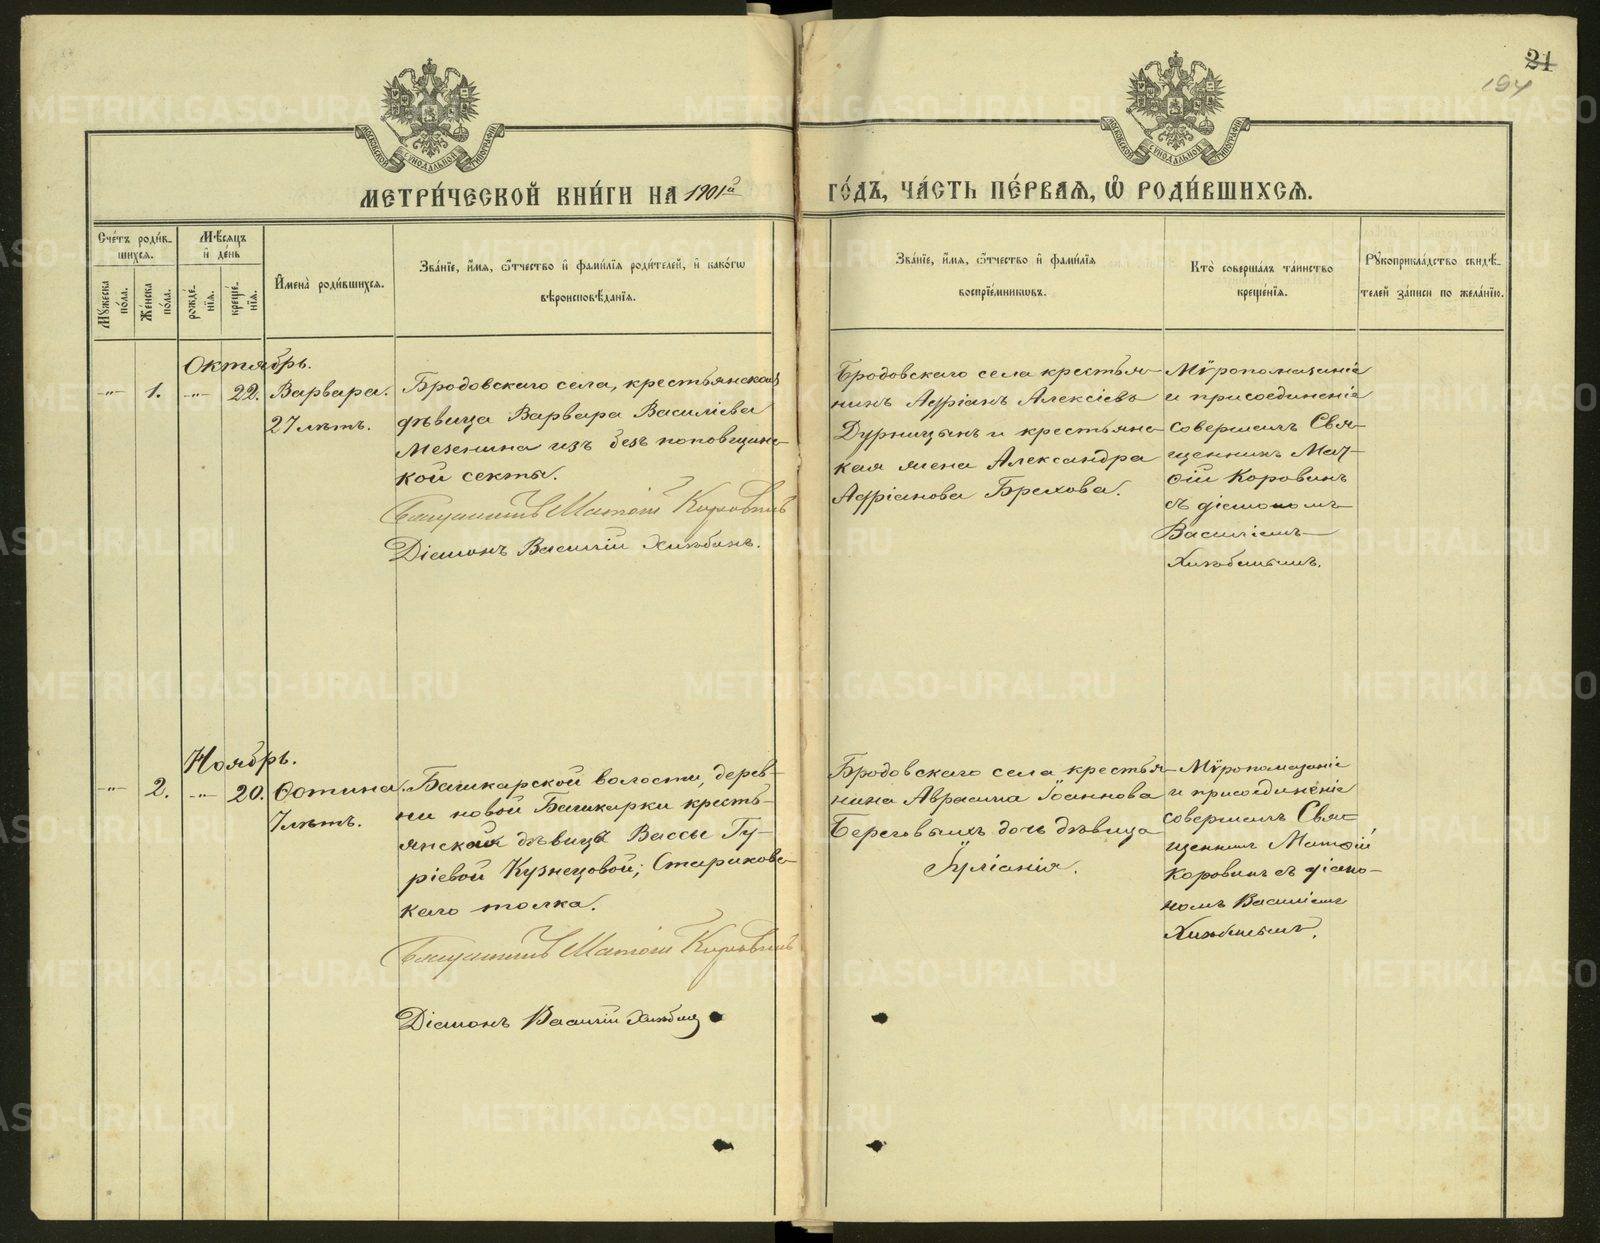 21
194
МОСКОВСКОЙ СУНОДАЛЬНОЙ ТИПОГРАФІИ
МОСКОВСКОЙ СУНОДАЛЬНОЙ ТИПОГРАФІИ
МЕТРИ́ЧЕСКОЙ КНИ́ГИ НА 1901й ГО́ДЪ, ЧА́СТЬ ПЕ́РВАѦ, Ѽ РОДИ́ВШИХСѦ.
Сче́тъ роди́в-
шихсѧ.
Мꙋ́жеска по́ла.
Же́нска по́ла.
Мѣ́сѧцъ и҆ де́нь
рожде́-нїѧ.
креще́-нїѧ.
И҆мена̀ роди́вшихсѧ.
Зва́нїе, и҆́мѧ, ѻ҆́тчество и҆ фами́лїѧ роди́телей, и҆ како́гѡ
вѣроисповѣ́данїѧ.
Зва́нїе, и҆́мѧ, ѻ҆́тчество и҆ фами́лїѧ
воспрїе́мникѡвъ.
Кто̀ соверша́лъ та́инство
креще́нїѧ.
Рꙋкоприкла́дство свидѣ́-
телей за́писи по жела́нїю.
Октябрь.
-"- 1. -"- 22. Варвара.
27 лѣтъ.
Бродовскаго села, крестьянская
дѣвица Варвара Василіева
Мезенина изъ безъ поповщинс-
кой секты.
Священникъ Матѳій Коровинъ
Діаконъ Василій Хлѣбинъ.
Бродовскаго села крестья-
нинъ Адріанъ Алексіевъ
Дурницынъ и крестьянс-
кая жена Александра
Адріанова Брехова.
Мѵропомазаніе
и присоединеніе
совершилъ Свя-
щенникъ Мат-
ѳій Коровинъ
съ діакономъ
Василіемъ
Хлѣбинымъ.
Ноябрь.
-"- 2. -"- 20. Ѳотина.
7 лѣтъ.
Башкарской волости, дерев-
ни новой Башкарки кресть-
янской дѣвицы Вассы Гу-
ріевой Кузнецовой; Стариковс-
каго толка.
Священникъ Матѳій Коровинъ
Діаконъ Василій Хлѣбинъ
Бродовскаго села крестья-
нина Аврамія Іоаннова
Береговыхъ дочь дѣвица
Іуліанія.
Мѵропомазаніе
и присоединеніе
совершилъ Свя-
щенникъ Матѳій
Коровинъ съ діако-
номъ Василіемъ
Хлѣбинымъ.
METRIKI.GASO-URAL.RU